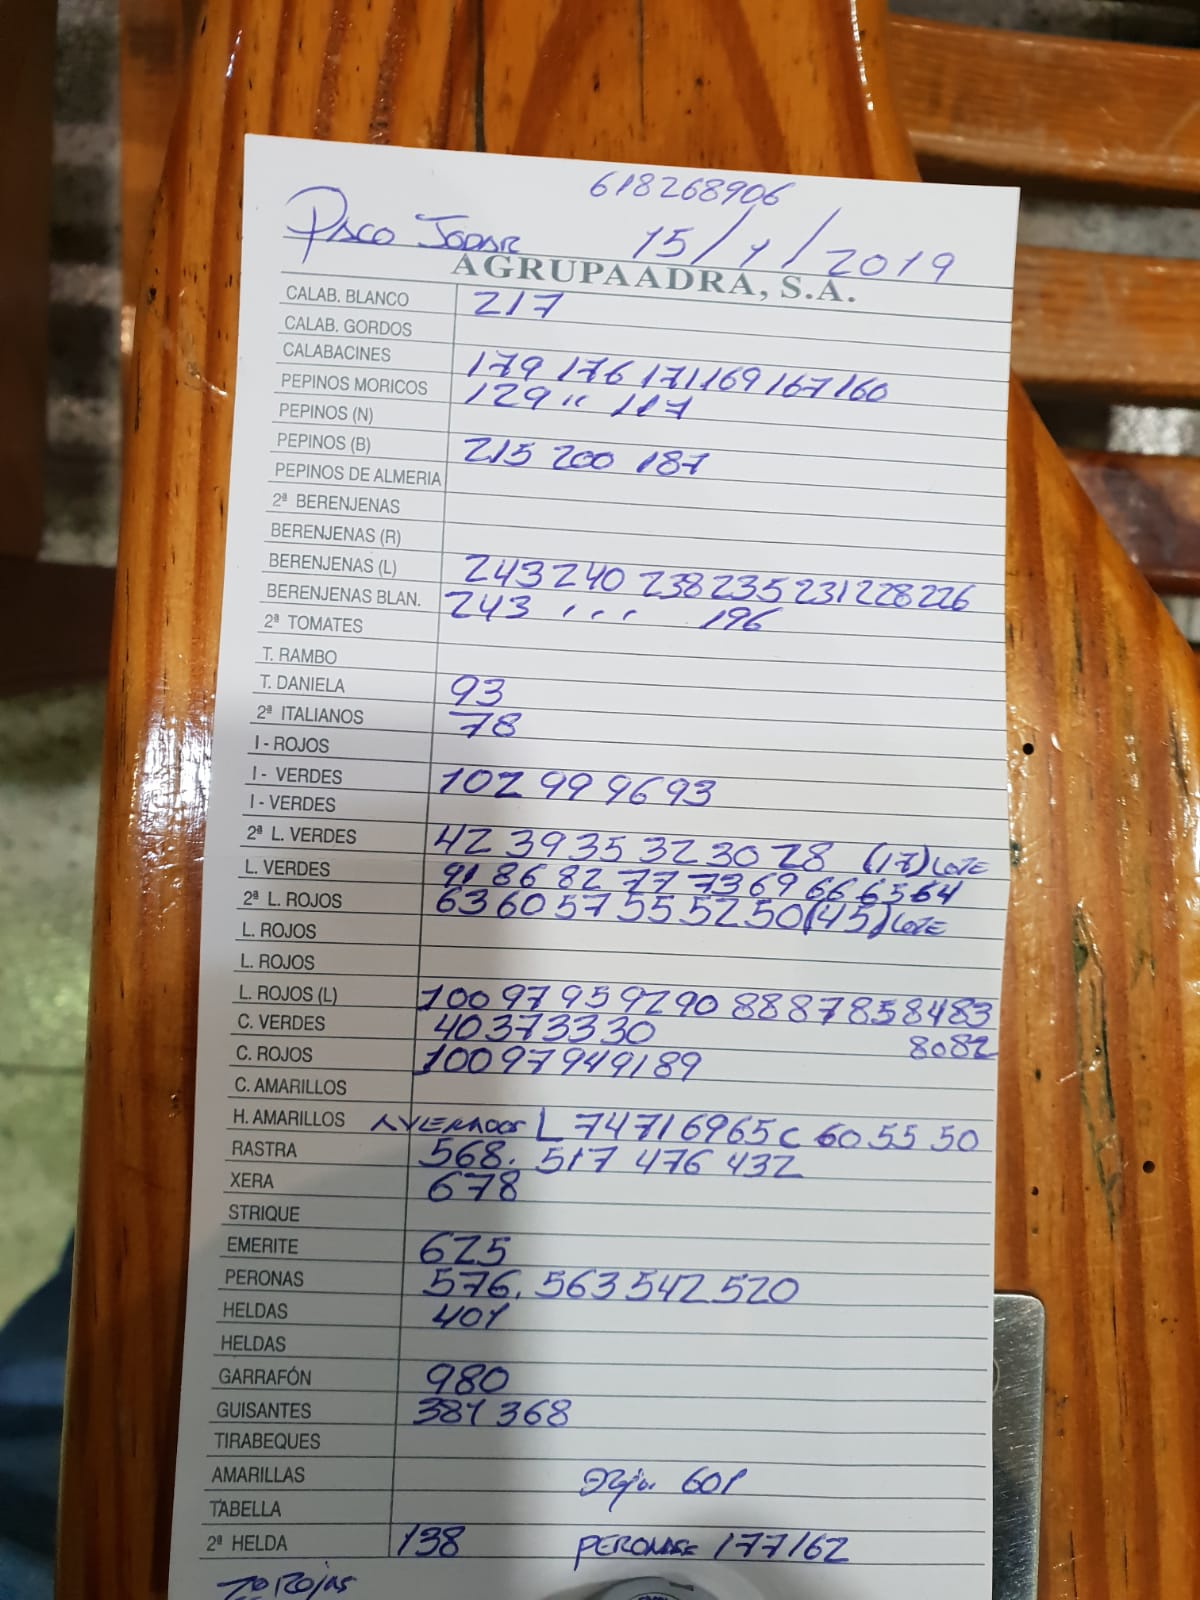 618268906
PACO JODAR 15/1/2019
AGRUPAADRA, S.A.
CALAB. BLANCO 217
CALAB. GORDOS
CALABACINES 179 176 171 169 167 160
PEPINOS MORICOS 129 " 117
PEPINOS (N)
PEPINOS (B) 215 200 187
PEPINOS DE ALMERIA
2ª BERENJENAS
BERENJENAS (R)
BERENJENAS (L) 243 240 238 235 231 228 226
BERENJENAS BLAN. 243 ... 196
2ª TOMATES
T. RAMBO
T. DANIELA 93
2ª ITALIANOS 78
I - ROJOS
I - VERDES 102 99 96 93
I - VERDES
2ª L. VERDES 42 39 35 32 30 28 (17) LOTE
L. VERDES 91 86 82 77 73 69 66 65 64
2ª L. ROJOS 63 60 57 55 52 50 (45) LOTE
L. ROJOS
L. ROJOS
L. ROJOS (L) 100 97 95 92 90 88 87 85 84 83
C. VERDES 40 37 33 30 80 82
C. ROJOS 100 97 94 91 89
C. AMARILLOS
H. AMARILLOS L 74 71 69 65 C 60 55 50
RASTRA 568. 517 476 432
XERA 678
STRIQUE
EMERITE 625
PERONAS 576. 563 542 520
HELDAS 401
HELDAS
GARRAFÓN 980
GUISANTES 381 368
TIRABEQUES
AMARILLAS 601
TABELLA
2ª HELDA 138 PERONAS 177 162
ROJAS